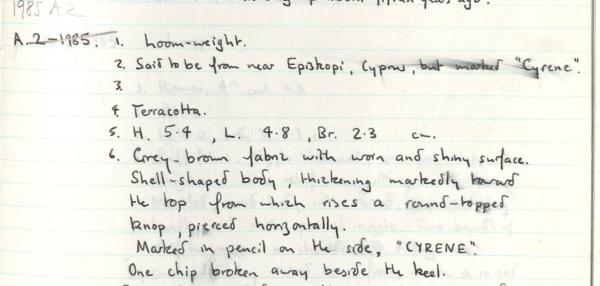 1985 A2
A.2-1985. 1. Loom-weight.
2. Said to be from near Episkopi, Cyprus, but marked "Cyrene".
3.
4. Terracotta.
5. H. 5.4, L. 4.8, Br. 2.3 cm.
6. Grey-brown fabric with worn and shiny surface.
Shell-shaped body, thickening markedly toward
the top from which rises a round-topped
knop, pierced horizontally.
Marked in pencil on the side, "CYRENE".
One chip broken away beside the keel.